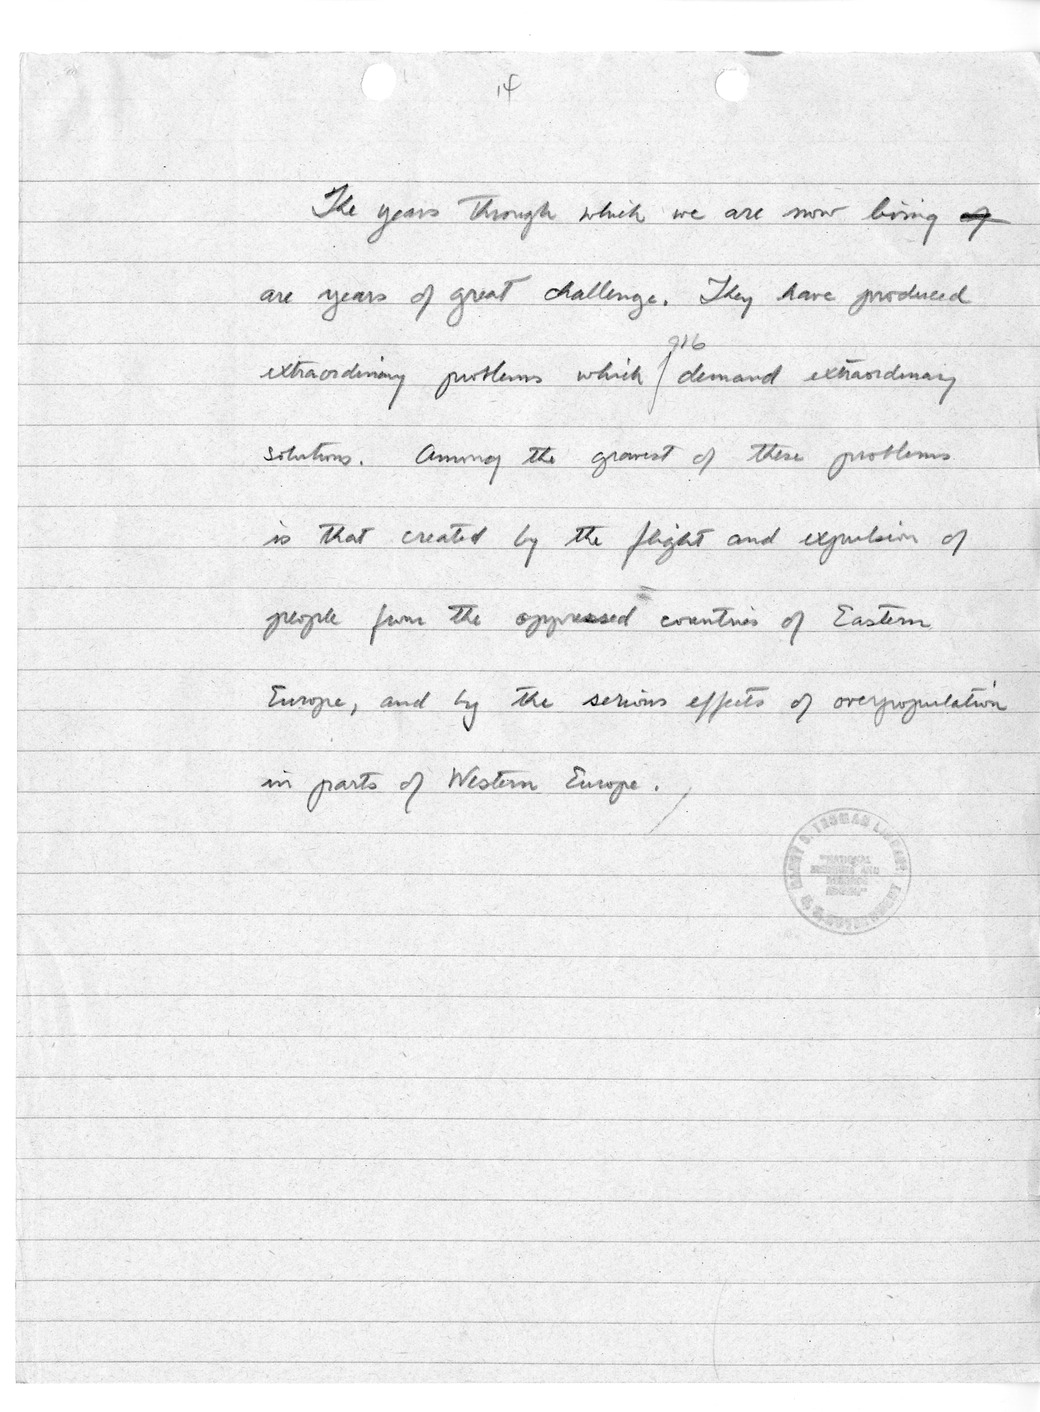 14
The years through which we are now living of
are years of great challenge. They have produced
916
extraordinary problems which demand extraordinary
solutions. Among the gravest of these problems
is that created by the flight and expulsion of
people from the oppressed countries of Eastern
Europe, and by the serious effects of overpopulation
in parts of Western Europe.
HARRY S. TRUMAN LIBRARY
"NATIONAL
ARCHIVES AND
RECORDS
SERVICE"
U.S. GOVERNMENT